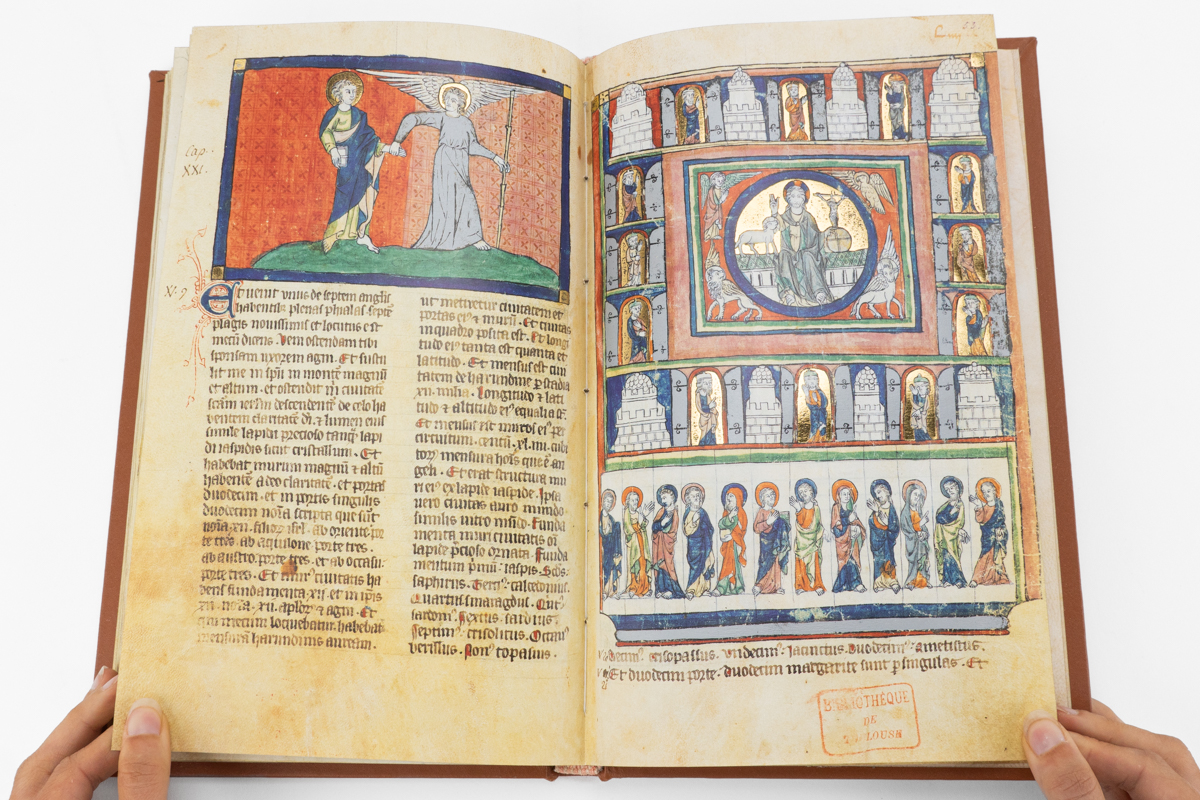 Cap.
XXI.
V. 9
Et venit unus de septem anglis
habentib; plenas phialas septē
plagis novissimis et locutus est
mecū dicens. Veni ostendam tibi
sponsam uxorem agni. Et sustu
lit me in spū in montē magnū
et altum. et ostendit m civitatē
scām ierlm descendentē de celo ha
bentem claritatē di. & lumen eius
simile lapidi precioso tanq̄ lapi
di iaspidis sicut cristallum. Et
habebat murum magnū & altū
habentē a deo claritatē. et portas
duodecim. et in portis singulis
duodecim noīa scripta que sūt
noīa .xii. filioꝝ isrl. ab oriente por
te tres. ab aquilone porte tres.
ab austro. porte tres. et ab occasu.
porte tres. Et mur' civitatis ha
bens fundamenta .xii. et in ipis
.xii. noīa .xii. aplor' & agni. Et
qui mecum loquebatur. habebat
mensurā harundinis auream.
ut metiretur civitatem et
portas ei' & murū. Et civitas
in quadro posita est. Et longi
tudo ei' tanta est quanta et
latitudo. Et mensus est civi
tatem de harundine p stadia
.xii. milia. Longitudo & lati
tudo & altitudo ei' equalia st̄.
Et mensus est muros ei' per
circuitum. centū .xl. iiii. cubi
tor' mensura hoīs que ē an
geli. Et erat structura mu
ri ei' ex lapide iaspide. Ipsa
vero civitas auro mundo
similis vitro mūdo. Funda
menta muri civitatis oī
lapide p̄cioso ornata. Funda
mentum primū. iaspis. Scd̄s.
saphirus. Terti'. calcedonius.
Quartus smaragdus. Quīt'
sardoni'. Sextus. sardius.
Septim'. crisolitus. Octav'
berillus. Non' topasius.
crisopassus. Undecim'. iacinctus. Duodecim'. ametistus.
Et duodecim porte. duodecim margarite sunt p singulas. Et
BIBLIOTHÉQUE
DE
TOULOUSE